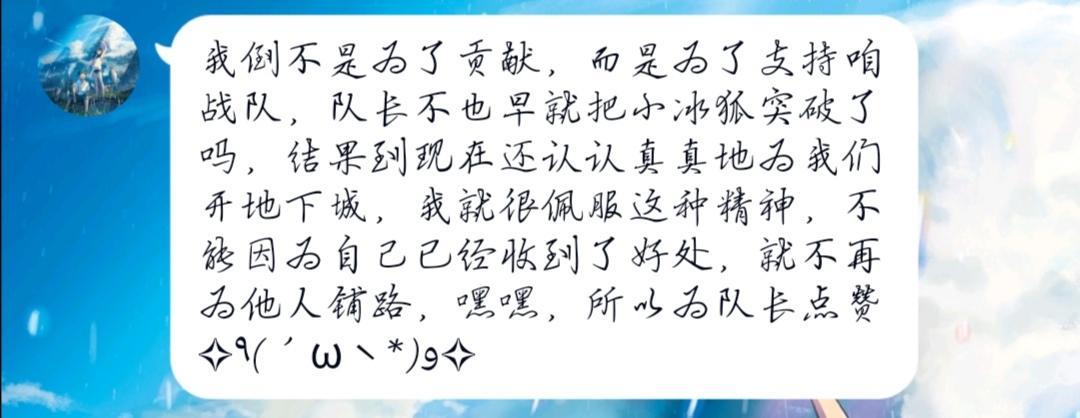 我倒不是为了贡献，而是为了支持咱
战队，队长不也早就把小冰狐突破了
吗，结果到现在还认认真真地为我们
开地下城，我就很佩服这种精神，不
能因为自己已经收到了好处，就不再
为他人铺路，嘿嘿，所以为队长点赞
✧٩(ˊωˋ*)و✧